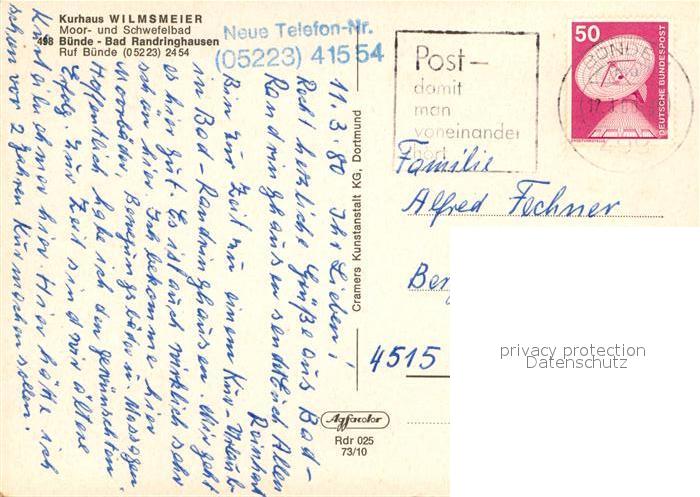 Kurhaus WILMSMEIER
Moor- und Schwefelbad
498 Bünde - Bad Randringhausen
Ruf Bünde (05223) 2454
Neue Telefon-Nr.
(05223) 41554
Post-
damit
man
voneinander
hört
50
DEUTSCHE BUNDESPOST
BÜNDE
11.3.80 Ihr Lieben!
Recht herzliche Grüße aus Bad-
Randringhausen sendet Euch Allen
Reinhart
Bin zur Zeit zu einem Kur-Urlaub
in Bad-Randringhausen. Mir geht
es hier gut. Es ist auch wirklich sehr
schön hier. Ich bekomme hier
Moorbäder, Bewegungsbäder u. Massagen.
Hoffentlich habe ich den gewünschten
Erfolg. Zur Zeit sind wir ältere
Kurteilnehmer hier. Hier hätte ich
schon vor 2 Jahren Kur machen sollen.
Cramers Kunstanstalt KG, Dortmund
Familie
Alfred Fechner
Ber
4515
Agfacolor
Rdr 025
73/10
privacy protection
Datenschutz